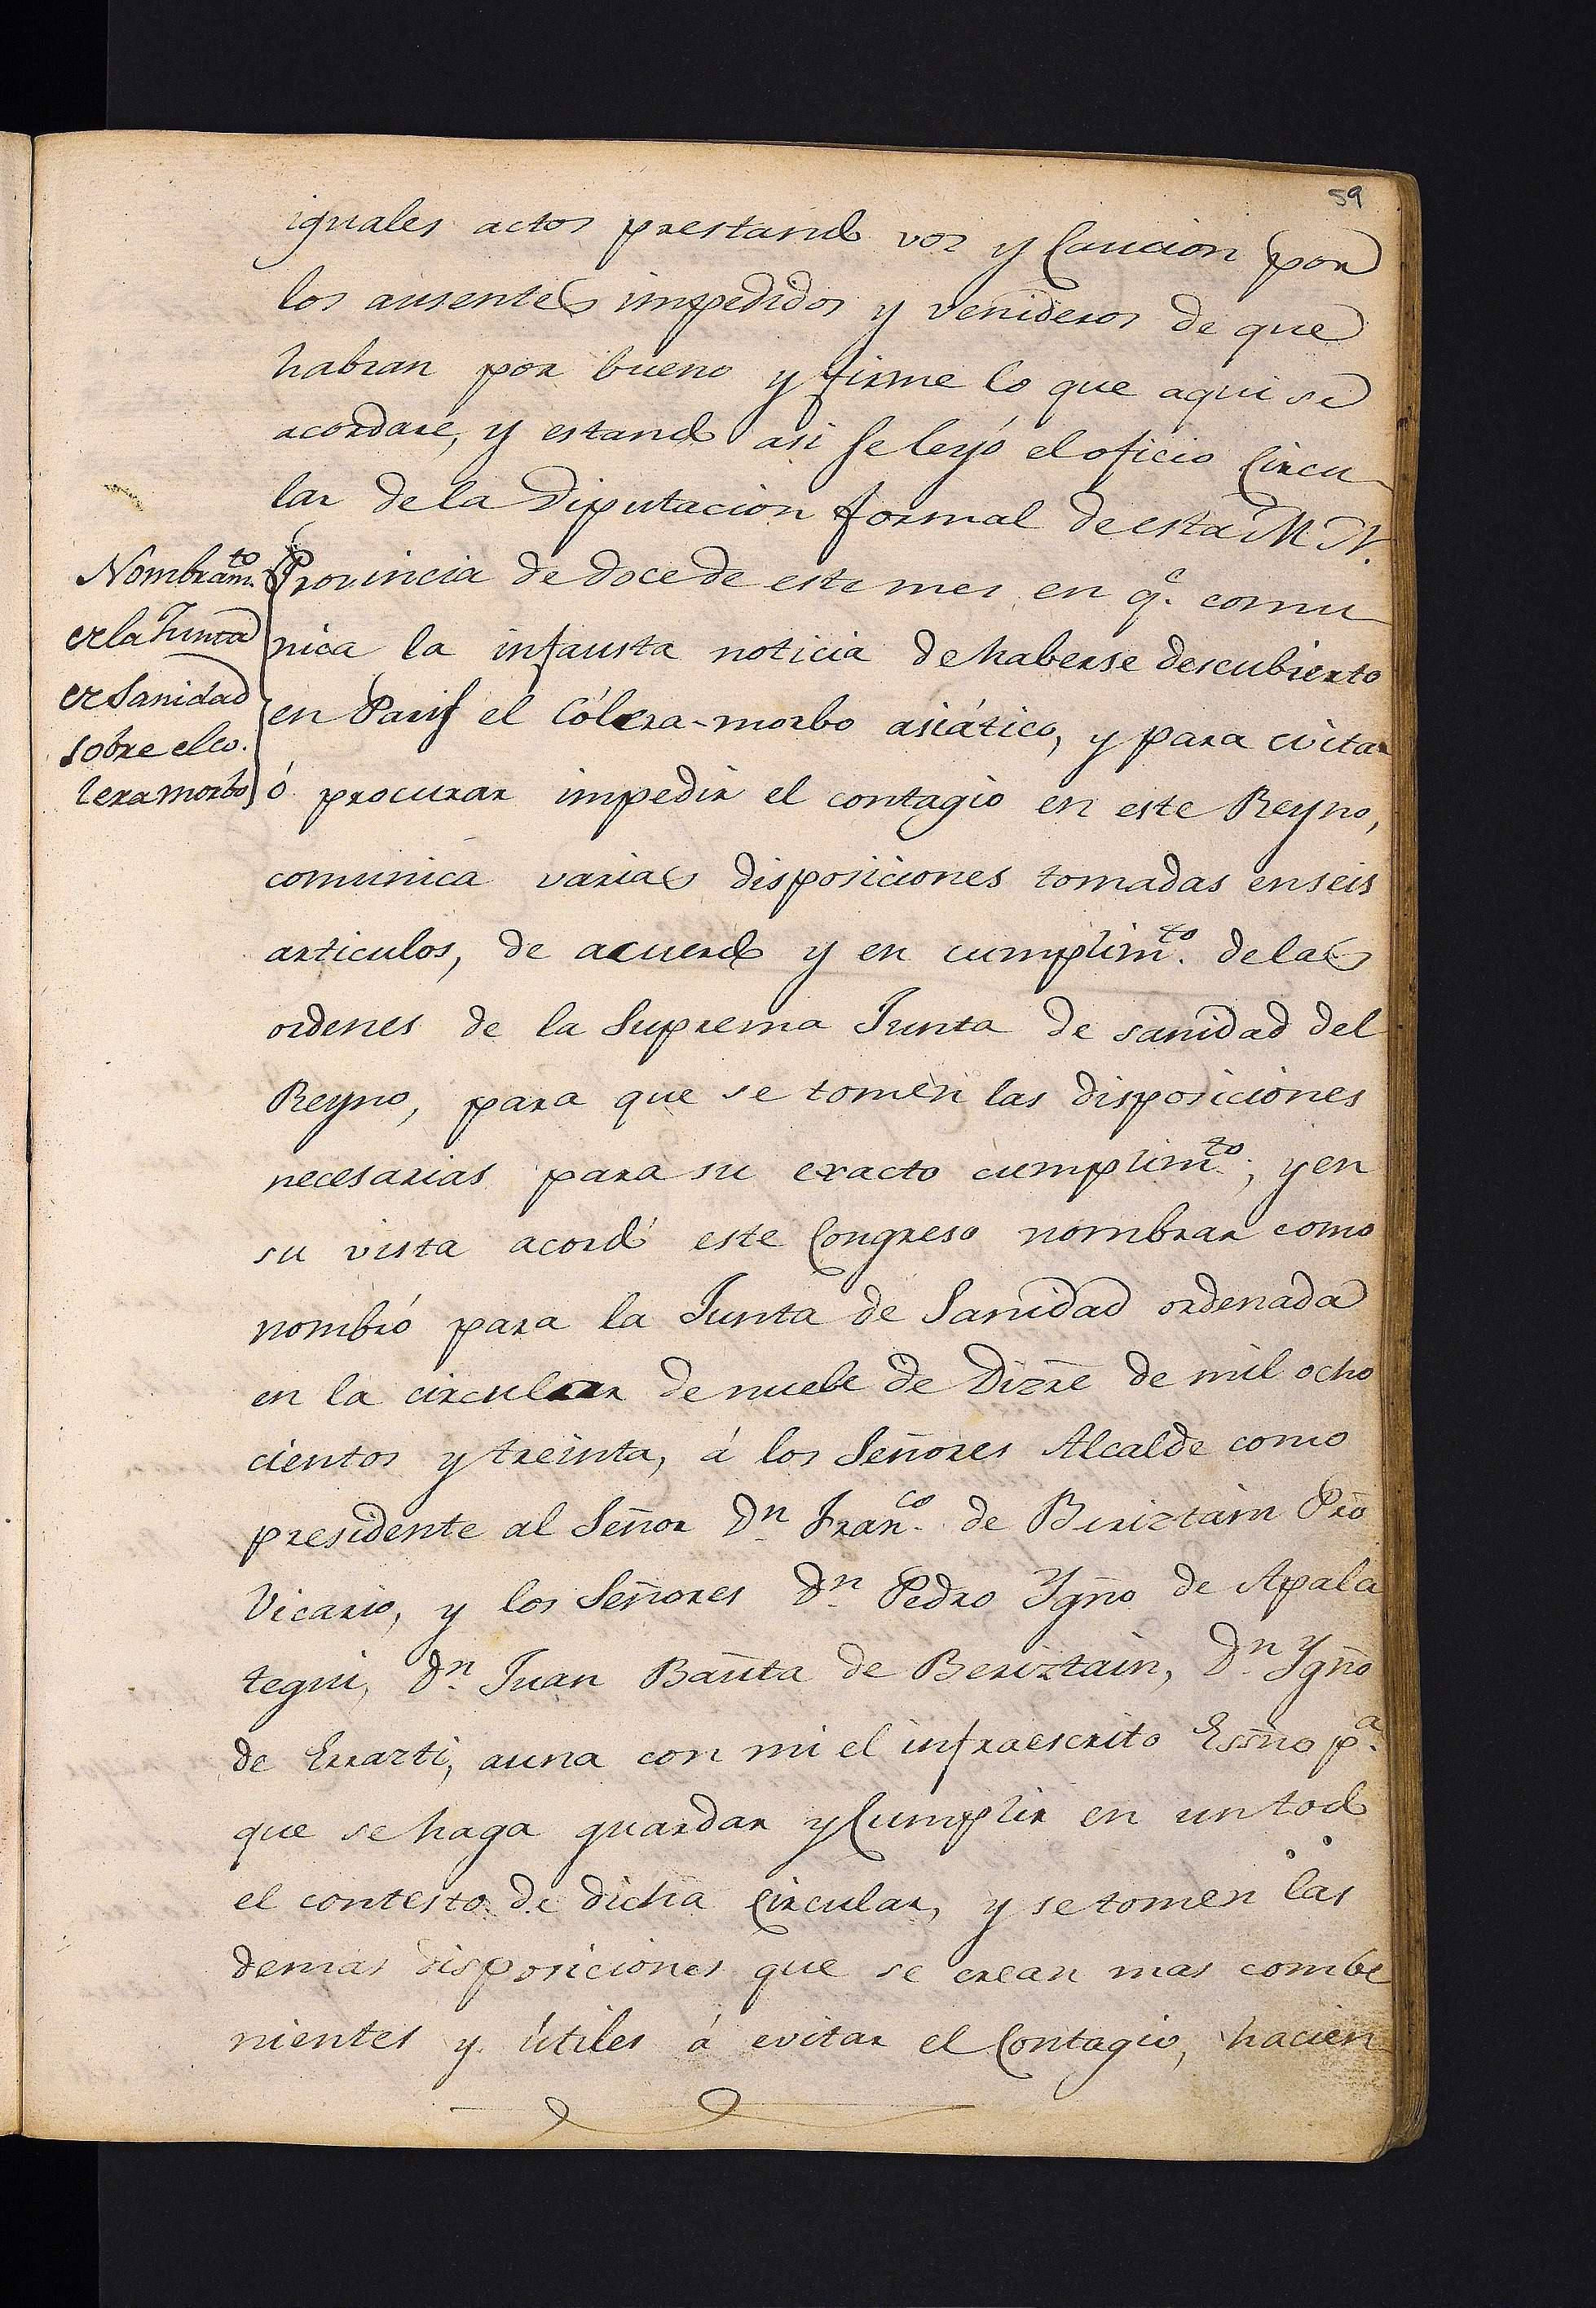 59
iguales actos prestando voz y Caucion por
los ausentes impedidos y venideros de que
habran por bueno y firme lo que aqui se
acordare, y estando asi se leyó el oficio Circu
lar de la Diputacion formal de esta M. N.
Provincia de doce de este mes en q.e comu
nica la infausta noticia de haberse descubierto
en Paris el Cólera-morbo asiático, y para evitar
ó procurar impedir el contagio en este Reyno,
comunica varias disposiciones tomadas en seis
articulos, de acuerdo y en cumplim.to de las
ordenes de la Suprema Junta de sanidad del
Reyno, para que se tomen las disposiciones
necesarias para su exacto cumplim.to; y en
su vista acordó este Congreso nombrar como
nombró para la Junta de Sanidad ordenada
en la circular de nuebe de Dizre de mil ocho
cientos y treinta, á los Señores Alcalde como
presidente al Señor D.n Fran.co de Beriztain Pro
Vicario, y los Señores D.n Pedro Ygno de Apala
tegui, D.n Juan Bauta de Beriztain, D.n Ygno
de Errazti, auna con mi el infraescrito Essno p.a
que se haga guardar y Cumplir en un todo
el contesto de dicha Circular, y se tomen las
demas disposiciones que se crean mas combe
nientes y útiles á evitar el Contagio, hacien
Nombram.to
de la Junta
de Sanidad
sobre el co.
lera morbo